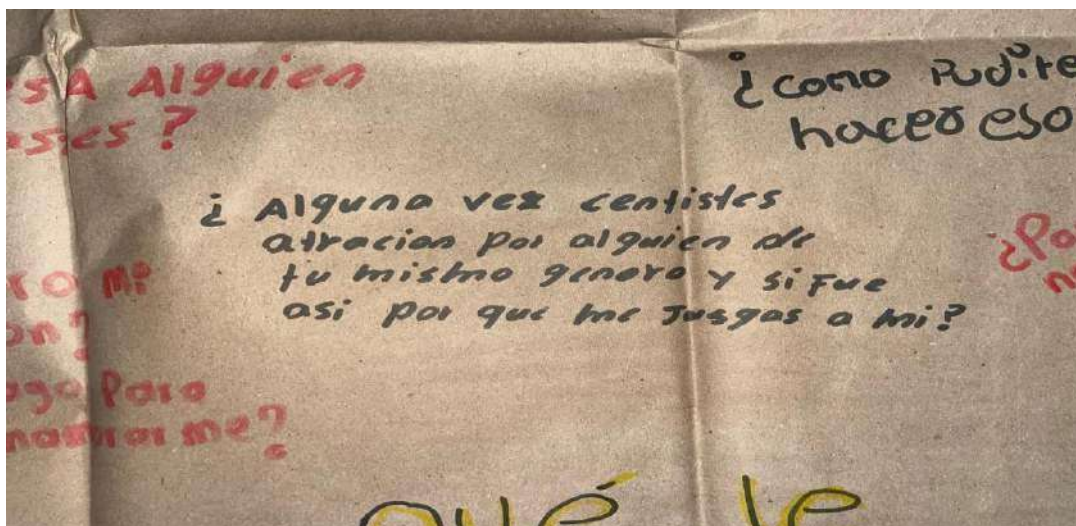 A Alguien
?
¿como
hacer eso
¿Alguna vez centistes
atracion por alguien de
tu mismo genero y si fue
asi por que me Jusgas a mi?
mi
?
Para
me?
qué le